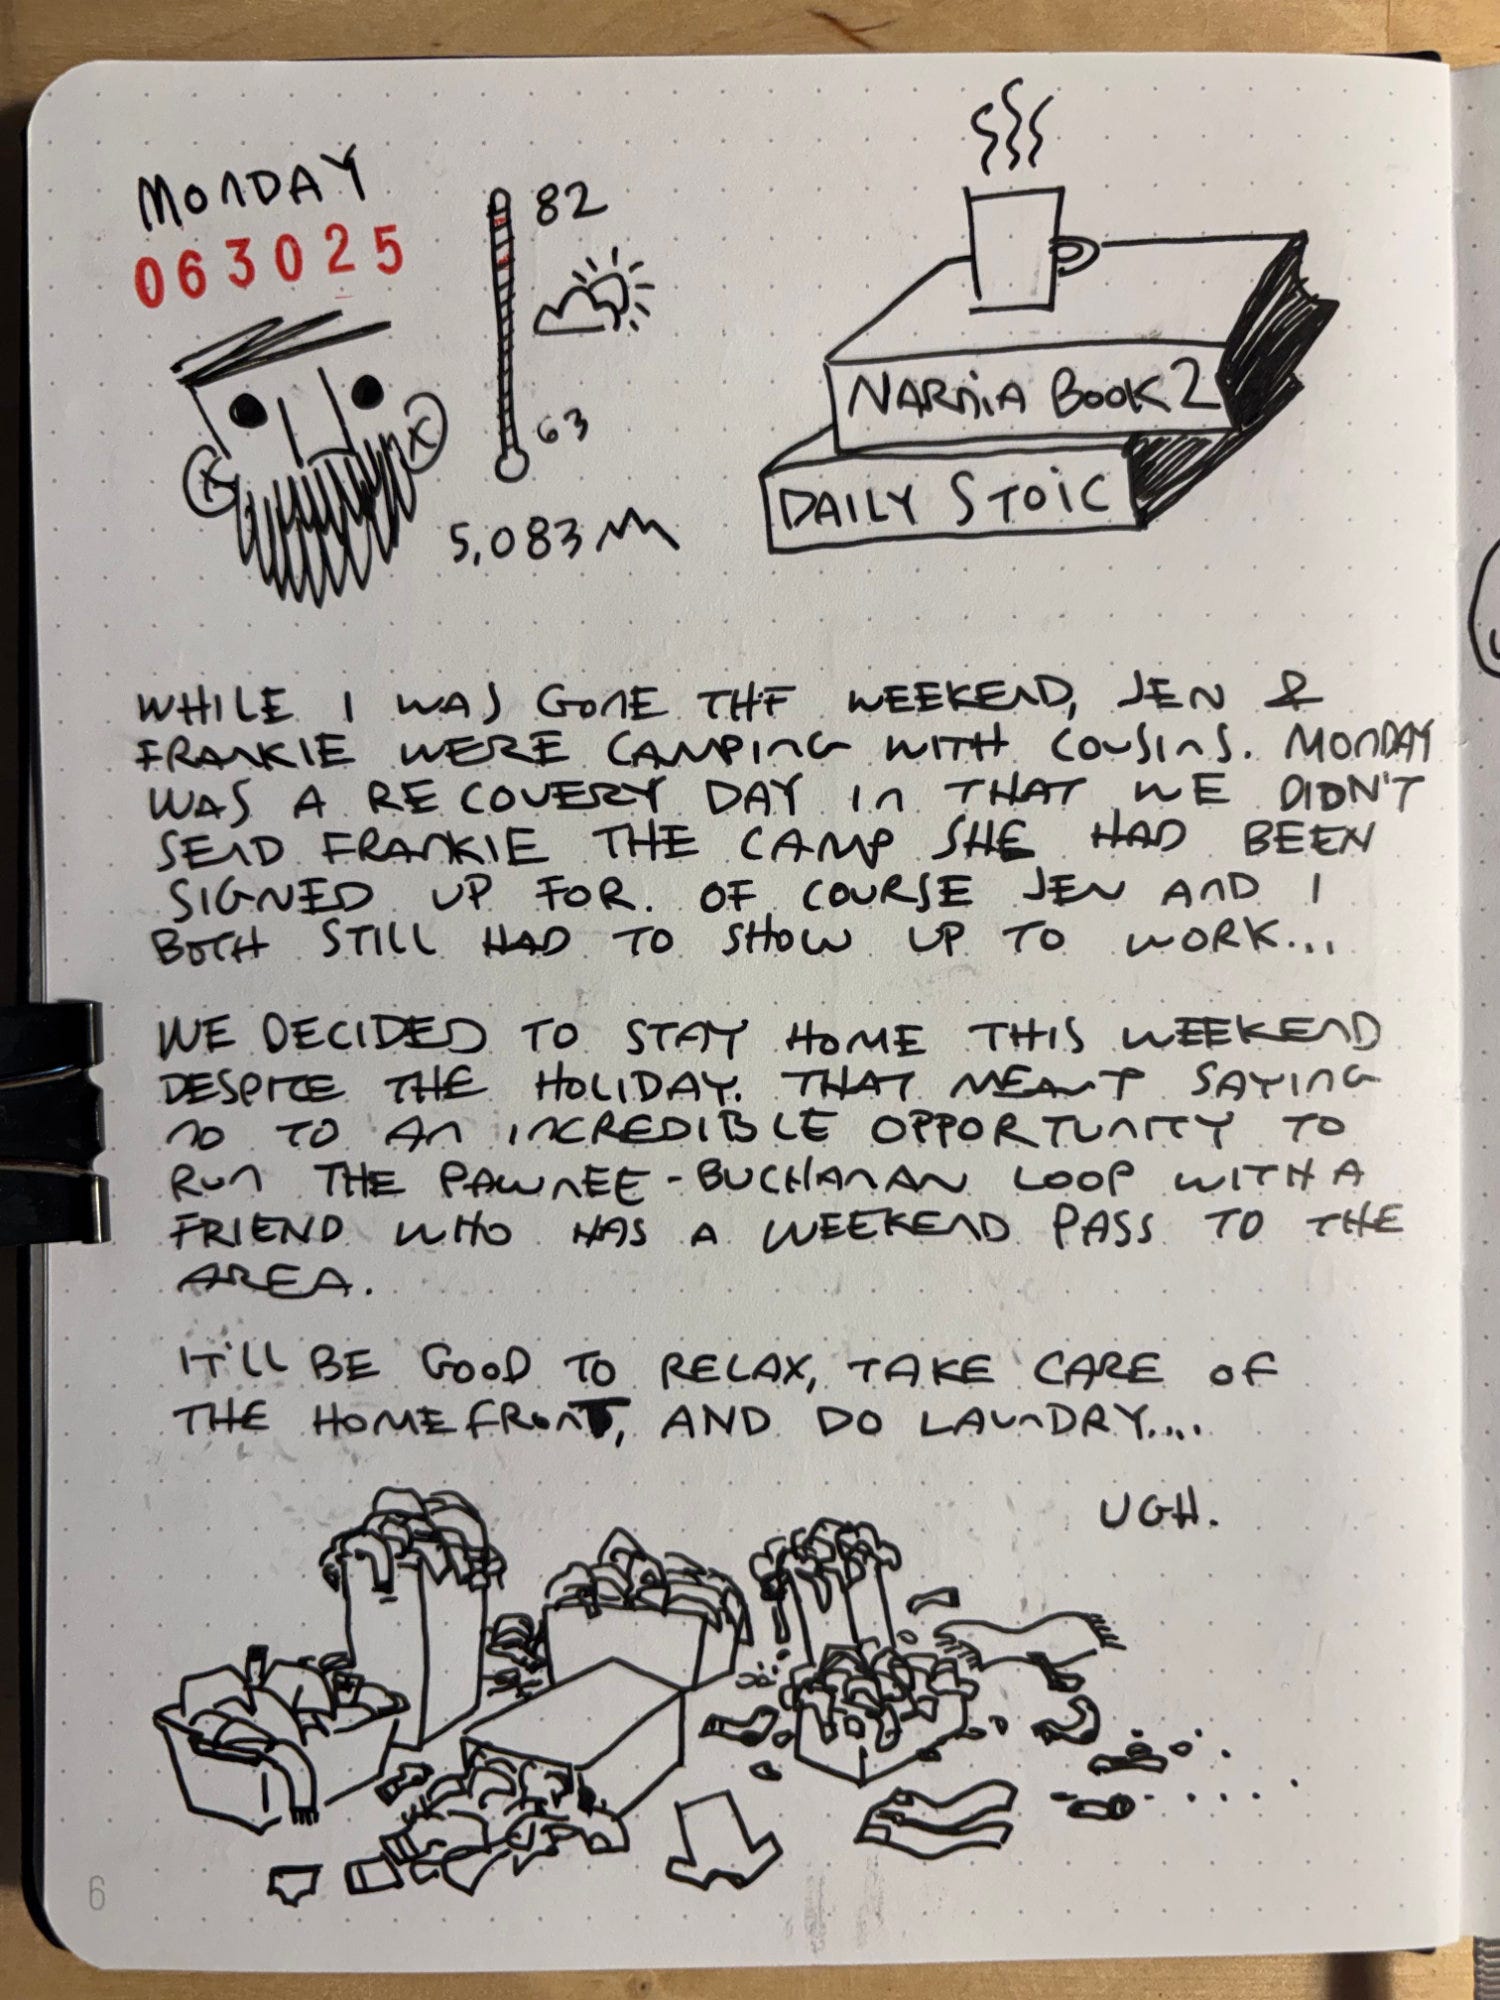 MONDAY
063025
82
63
5,083
NARNIA BOOK 2
DAILY STOIC
WHILE I WAS GONE THE WEEKEND, JEN &
FRANKIE WERE CAMPING WITH COUSINS. MONDAY
WAS A RECOVERY DAY IN THAT WE DIDN'T
SEND FRANKIE THE CAMP SHE HAD BEEN
SIGNED UP FOR. OF COURSE JEN AND I
BOTH STILL HAD TO SHOW UP TO WORK...
WE DECIDED TO STAY HOME THIS WEEKEND
DESPITE THE HOLIDAY. THAT MEANT SAYING
NO TO AN INCREDIBLE OPPORTUNITY TO
RUN THE PAWNEE-BUCHANAN LOOP WITH A
FRIEND WHO HAS A WEEKEND PASS TO THE
AREA.
IT'LL BE GOOD TO RELAX, TAKE CARE OF
THE HOMEFRONT, AND DO LAUNDRY....
UGH.
6